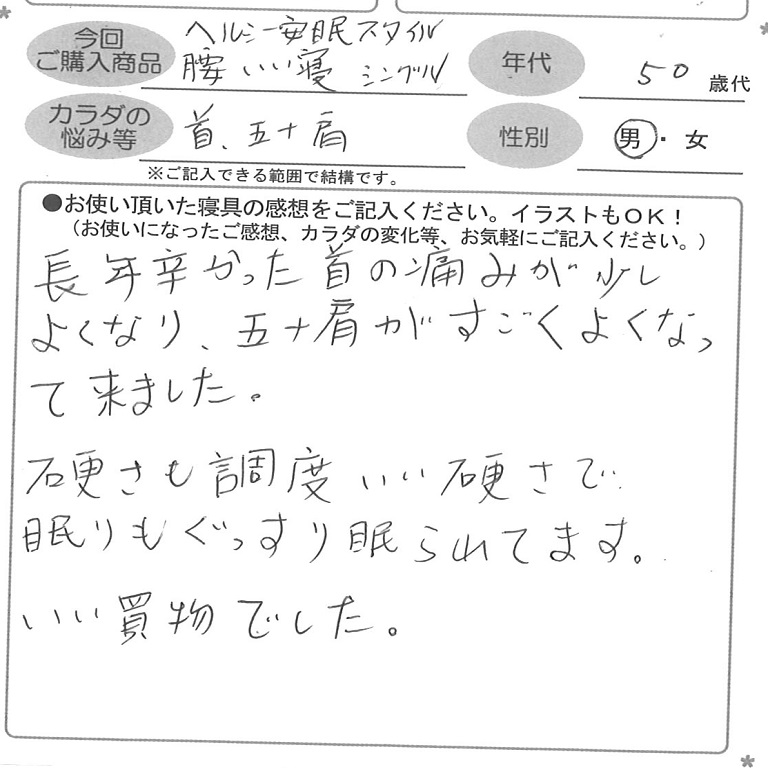 今回
ご購入商品
ヘルシー安眠スタイル
腰いい寝 シングル
年代
50歳代
カラダの
悩み等
首、五十肩
性別
男・女
※ご記入できる範囲で結構です。
●お使い頂いた寝具の感想をご記入ください。イラストもOK！
（お使いになったご感想、カラダの変化等、お気軽にご記入ください。）
長年辛かった首の痛みが少し
よくなり、五十肩がすごくよくなっ
て来ました。
硬さも調度いい硬さで
眠りもぐっすり眠られてます。
いい買物でした。